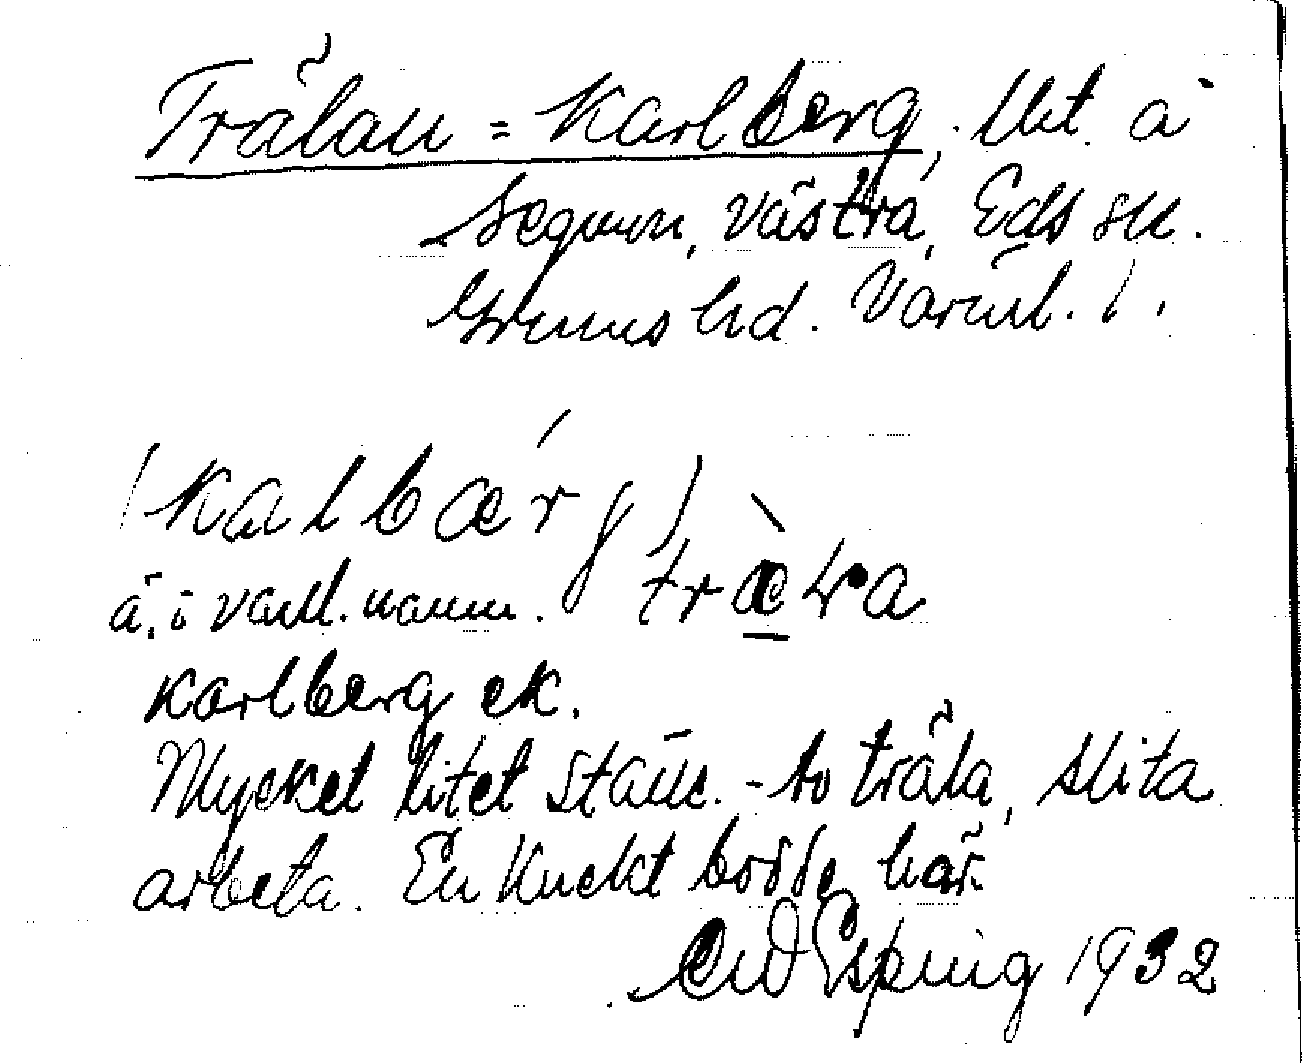 Trälan = Karlberg, lht. å
Segmon, västra, Eds sn.
Grums hd. Värml. l.
(kalbǽrj) træ̀ƚa
ä. i vard. namn.
Karlberg ek.
Mycket litet ställe. - to träla, slita
arbeta. En knekt bodde här.
Espring 1932